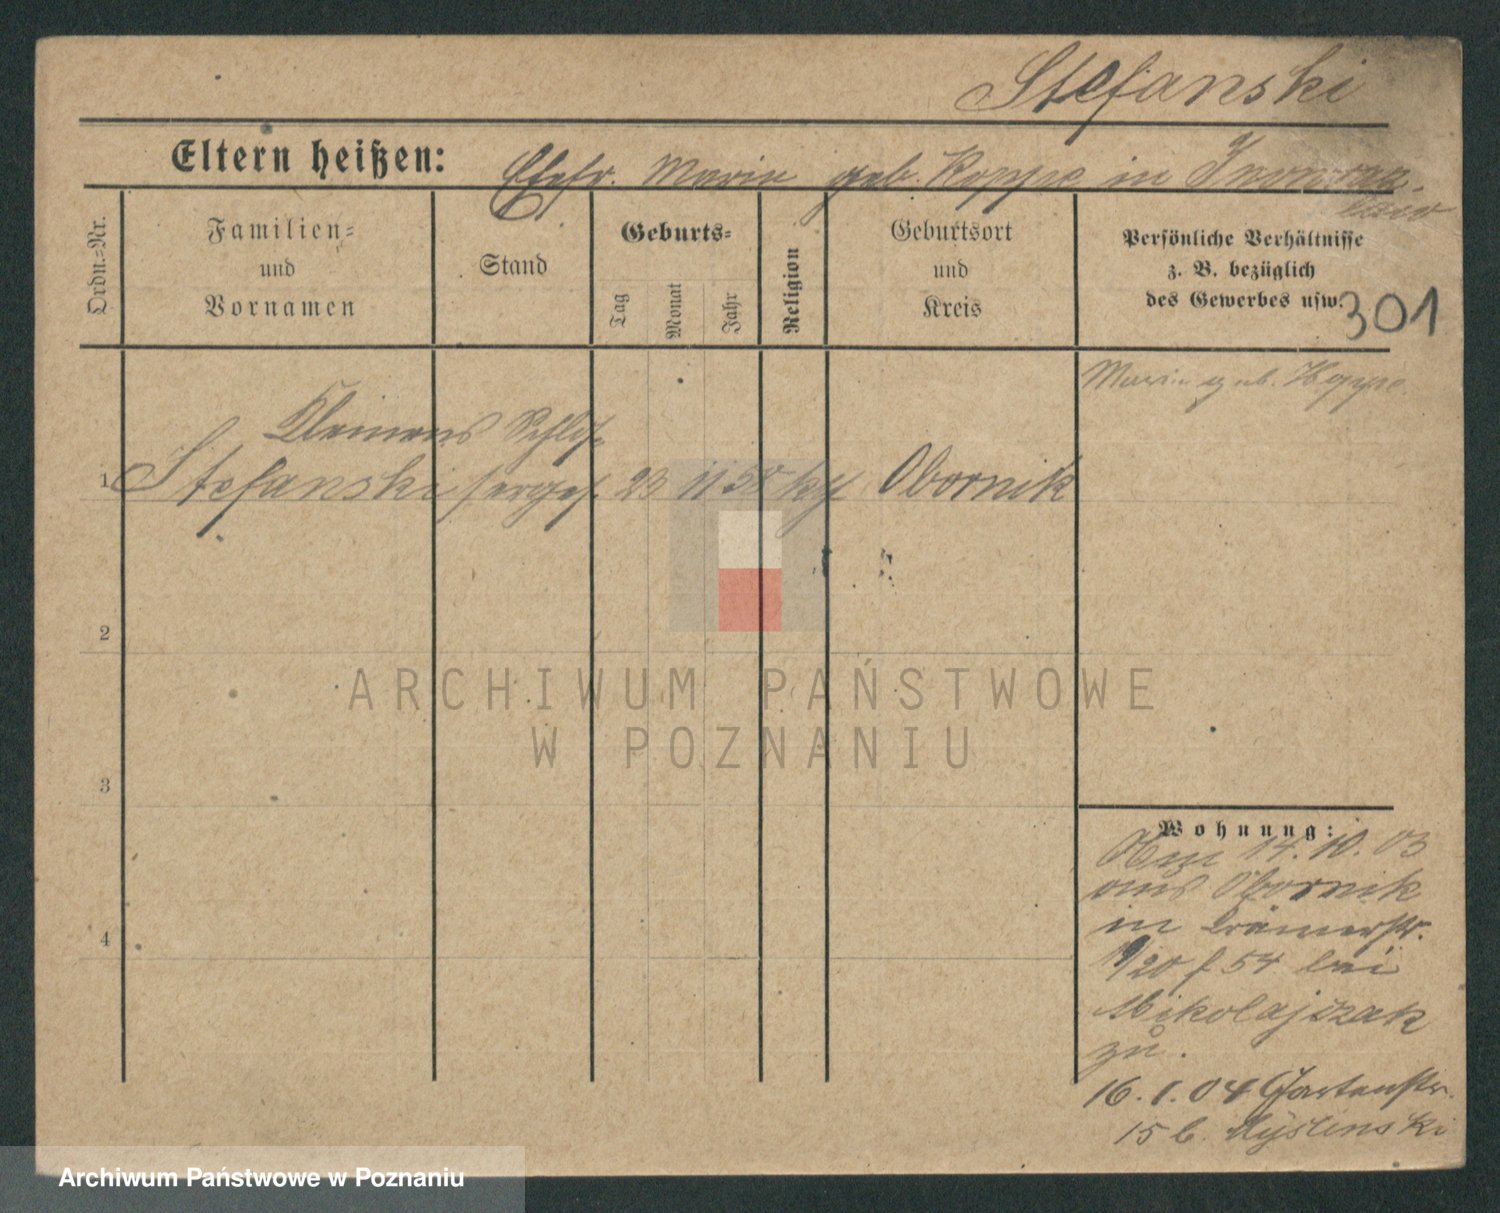 Stefanski
Eltern heißen: Ehefr. Marie geb. Koppe in Inowraz-
law
Ordn.-Nr.
Familien-
und
Vornamen
Stand
Geburts-
Tag
Monat
Jahr
Religion
Geburtsort
und
Kreis
Persönliche Verhältnisse
z. B. bezüglich
des Gewerbes usw.
301
Marie geb. Hoppe
Klemens Schlos-
1 Stefanski serges. 23 11 58 kth Obornik
2
3
4
Wohnung:
14. 10. 03
aus Obornik
in Krämerstr.
19/20 f 54 bei
Mikolajszak
zu.
16. 1. 04 Gartenstr.
15 b.
ARCHIWUM PAŃSTWOWE
W POZNANIU
Archiwum Państwowe w Poznaniu